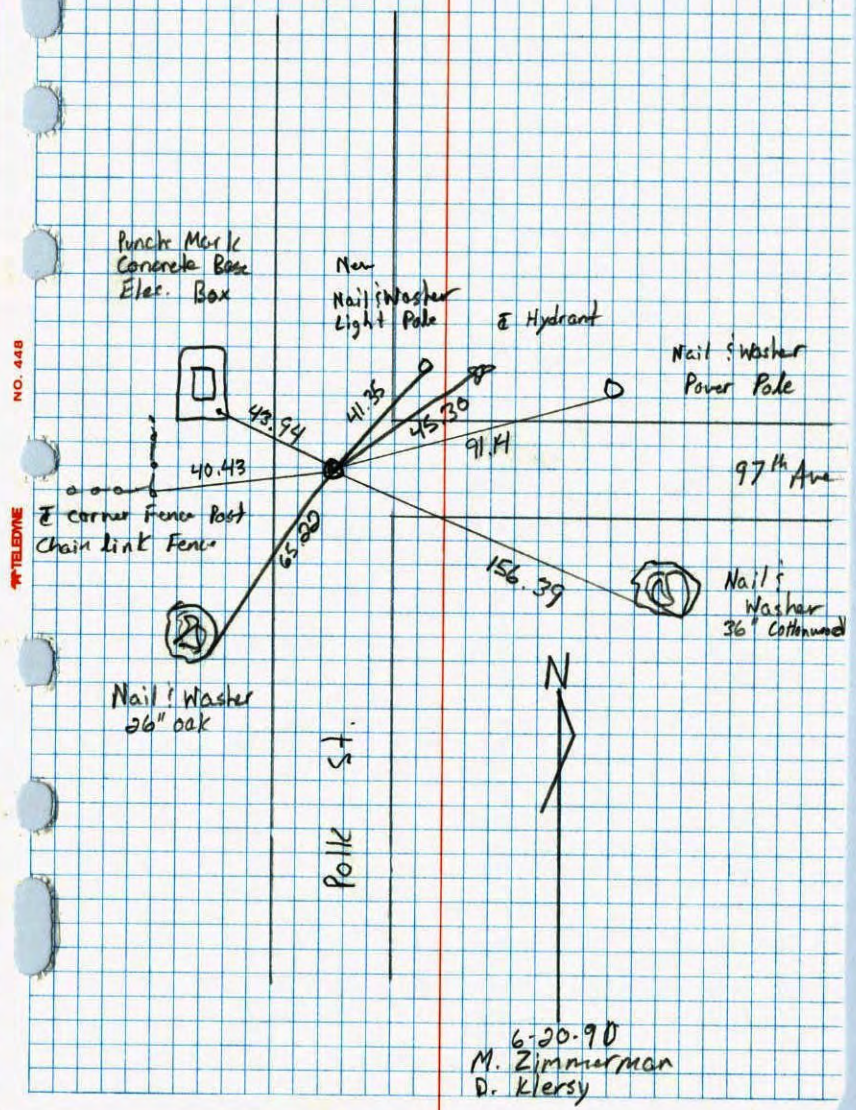 Punch Mark
Concrete Base
Elec. Box
New
Nail & Washer
Light Pole
℄ Hydrant
Nail & Washer
Power Pole
43.94
41.35
45.30
91.14
40.43
97th Ave
℄ Corner Fence Post
Chain Link Fence
65.20
156.39
Nail &
Washer
36" Cottonwood
Nail & Washer
26" oak
N
Polk St.
6-20-90
M. Zimmerman
D. Klersy
NO. 448
TELEDYNE